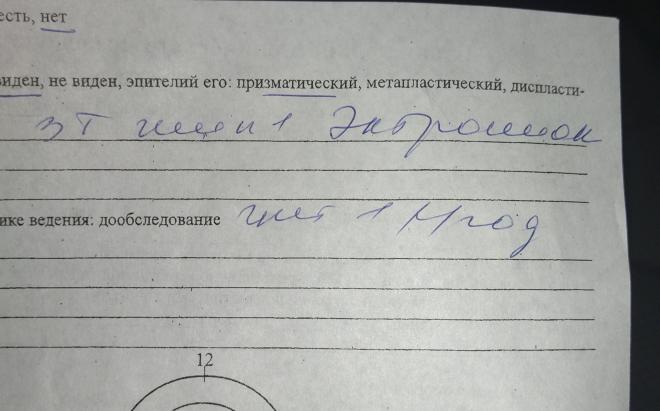 есть, нет
виден, не виден, эпителий его: призматический, метапластический, диспласти-
ЗТ тип 1 Эктропион
ике ведения: дообследование 1 год
12